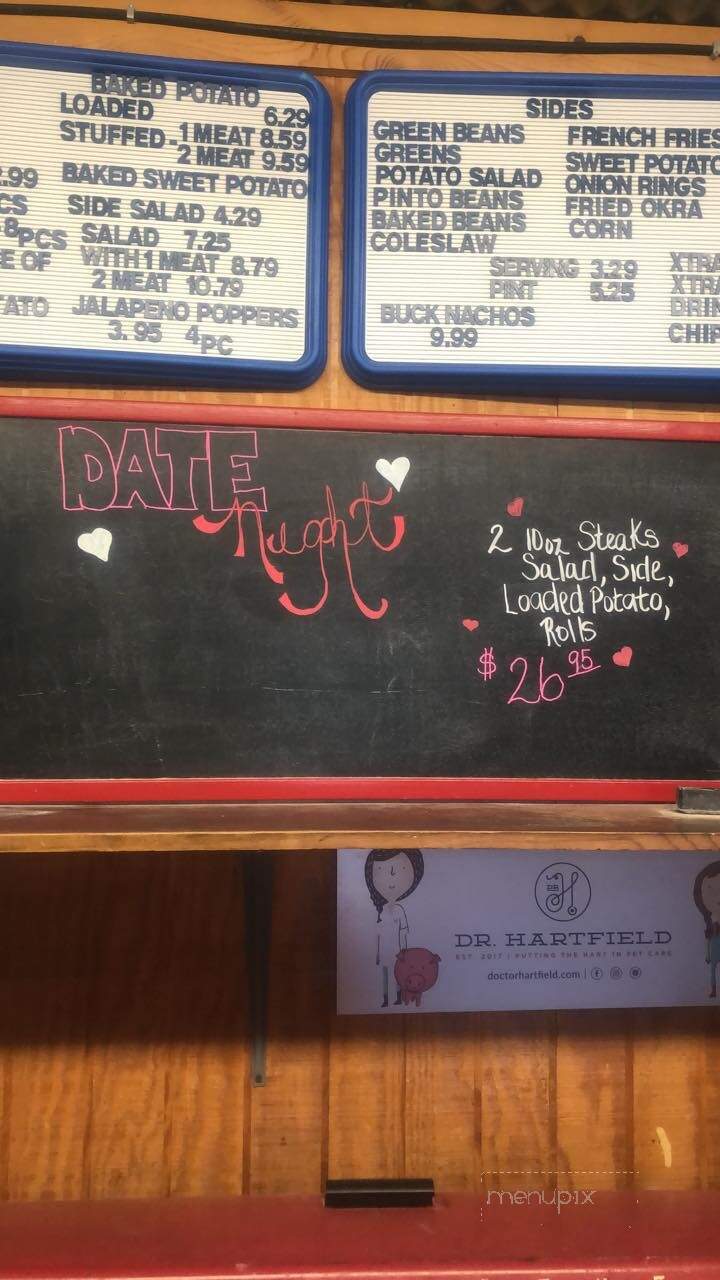 BAKED POTATO
LOADED 6.29
STUFFED - 1 MEAT 8.59
2 MEAT 9.59
.99 BAKED SWEET POTATO
CS SIDE SALAD 4.29
8PCS SALAD 7.25
E OF WITH 1 MEAT 8.79
2 MEAT 10.79
TATO JALAPENO POPPERS
3.95 4PC
SIDES
GREEN BEANS FRENCH FRIES
GREENS SWEET POTATO
POTATO SALAD ONION RINGS
PINTO BEANS FRIED OKRA
BAKED BEANS CORN
COLESLAW
SERVING 3.29 XTRA
PINT 5.25 XTRA
BUCK NACHOS DRIN
9.99 CHIP
DATE
Night
2 10oz Steaks
Salad, Side,
Loaded Potato,
Rolls
$26.95
DR. HARTFIELD
EST. 2017 | PUTTING THE HART IN PET CARE
doctorhartfield.com
menupix